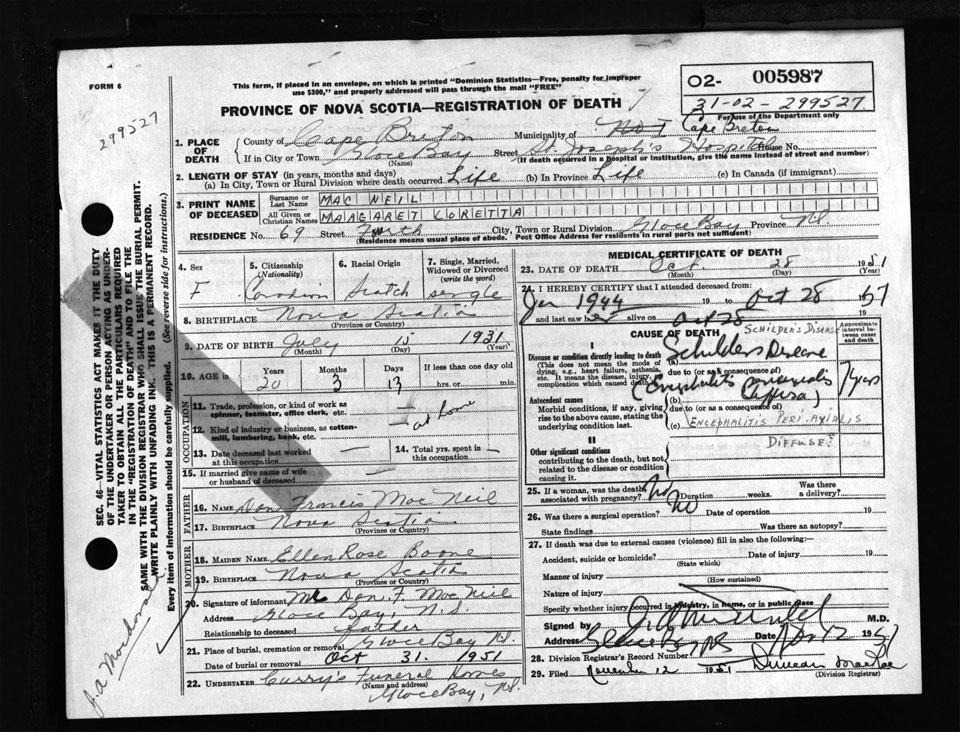 FORM 6
299527
This form, if placed in an envelope, on which is printed "Dominion Statistics—Free, penalty for improper
use $300," and properly addressed will pass through the mail "FREE"
O2- 005987
31-02-299527
For use of the Department only
PROVINCE OF NOVA SCOTIA—REGISTRATION OF DEATH
1. PLACE OF DEATH
County of Cape Breton Municipality of No 1 Cape Breton
If in City or Town Glace Bay (Name) Street St. Joseph's Hospital House No.
(If death occurred in a hospital or institution, give the name instead of street and number)
2. LENGTH OF STAY (in years, months and days)
(a) In City, Town or Rural Division where death occurred Life (b) In Province Life (c) In Canada (if immigrant)
3. PRINT NAME OF DECEASED
Surname or Last Name MAC NEIL
All Given or Christian Names MARGARET LORETTA
RESIDENCE No. 69 Street Fourth City, Town or Rural Division Glace Bay Province N.S.
(Residence means usual place of abode. Post Office Address for residents in rural parts not sufficient)
4. Sex F
5. Citizenship (Nationality) Canadian
6. Racial Origin Scotch
7. Single, Married, Widowed or Divorced (write the word) single
8. BIRTHPLACE Nova Scotia
(Province or Country)
9. DATE OF BIRTH July 15 1931
(Month) (Day) (Year)
10. AGE in Years 20 Months 3 Days 13 If less than one day old hrs. or min.
OCCUPATION
11. Trade, profession, or kind of work as spinner, teamster, office clerk, etc. —
at home
12. Kind of industry or business, as cotton-mill, lumbering, bank, etc.
13. Date deceased last worked at this occupation —
14. Total yrs. spent in this occupation —
15. If married give name of wife or husband of deceased —
FATHER
16. NAME Dan Francis Mac Neil
17. BIRTHPLACE Nova Scotia
(Province or Country)
MOTHER
18. MAIDEN NAME Ellen Rose Boone
19. BIRTHPLACE Nova Scotia
(Province or Country)
20. Signature of informant Mr Dan. F. Mac Neil
Address Glace Bay, N.S.
Relationship to deceased father
21. Place of burial, cremation or removal Glace Bay N.S.
Date of burial or removal Oct 31. 1951
22. UNDERTAKER Curry's Funeral Homes
(Name and address)
Glace Bay, N.S.
MEDICAL CERTIFICATE OF DEATH
23. DATE OF DEATH Oct. 28 1951
(Month) (Day) (Year)
24. I HEREBY CERTIFY that I attended deceased from:
Jan 1944 19 to Oct 28 1951
and last saw her alive on Oct 28
CAUSE OF DEATH
SCHILDER'S DISEASE
Approximate interval between cause and death
I
Disease or condition directly leading to death
(This does not mean the mode of dying, e.g., heart failure, asthenia, etc. It means the disease, injury, or complication which caused death)
(a) Schilders Disease
due to (or as a consequence of)
7 years
Antecedent causes
Morbid conditions, if any, giving rise to the above cause, stating the underlying condition last.
(b) (Encephalitis periaxialis diffusa)
due to (or as a consequence of)
(c) ENCEPHALITIS PERI-AXIALIS
DIFFUSE?
II
Other significant conditions
contributing to the death, but not related to the disease or condition causing it.
25. If a woman, was the death associated with pregnancy? No Duration weeks. Was there a delivery?
26. Was there a surgical operation? No Date of operation 19
State findings Was there an autopsy?
27. If death was due to external causes (violence) fill in also the following:—
Accident, suicide or homicide? Date of injury 19
(State which)
Manner of injury
(How sustained)
Nature of injury
Specify whether injury occurred in industry, in home, or in public place
Signed by
Address Glace Bay NS Date Nov 2 195
28. Division Registrar's Record Number
29. Filed November 12 1951 Duncan MacRae
(Division Registrar)
SEC. 46—VITAL STATISTICS ACT MAKES IT THE DUTY
OF THE UNDERTAKER OR PERSON ACTING AS UNDER-
TAKER TO OBTAIN ALL THE PARTICULARS REQUIRED
IN THE "REGISTRATION OF DEATH" AND TO FILE THE
SAME WITH THE DIVISION REGISTRAR WHO SHALL ISSUE THE BURIAL PERMIT.
WRITE PLAINLY WITH UNFADING INK. THIS IS A PERMANENT RECORD.
Every item of information should be carefully supplied. (See reverse side for instructions.)